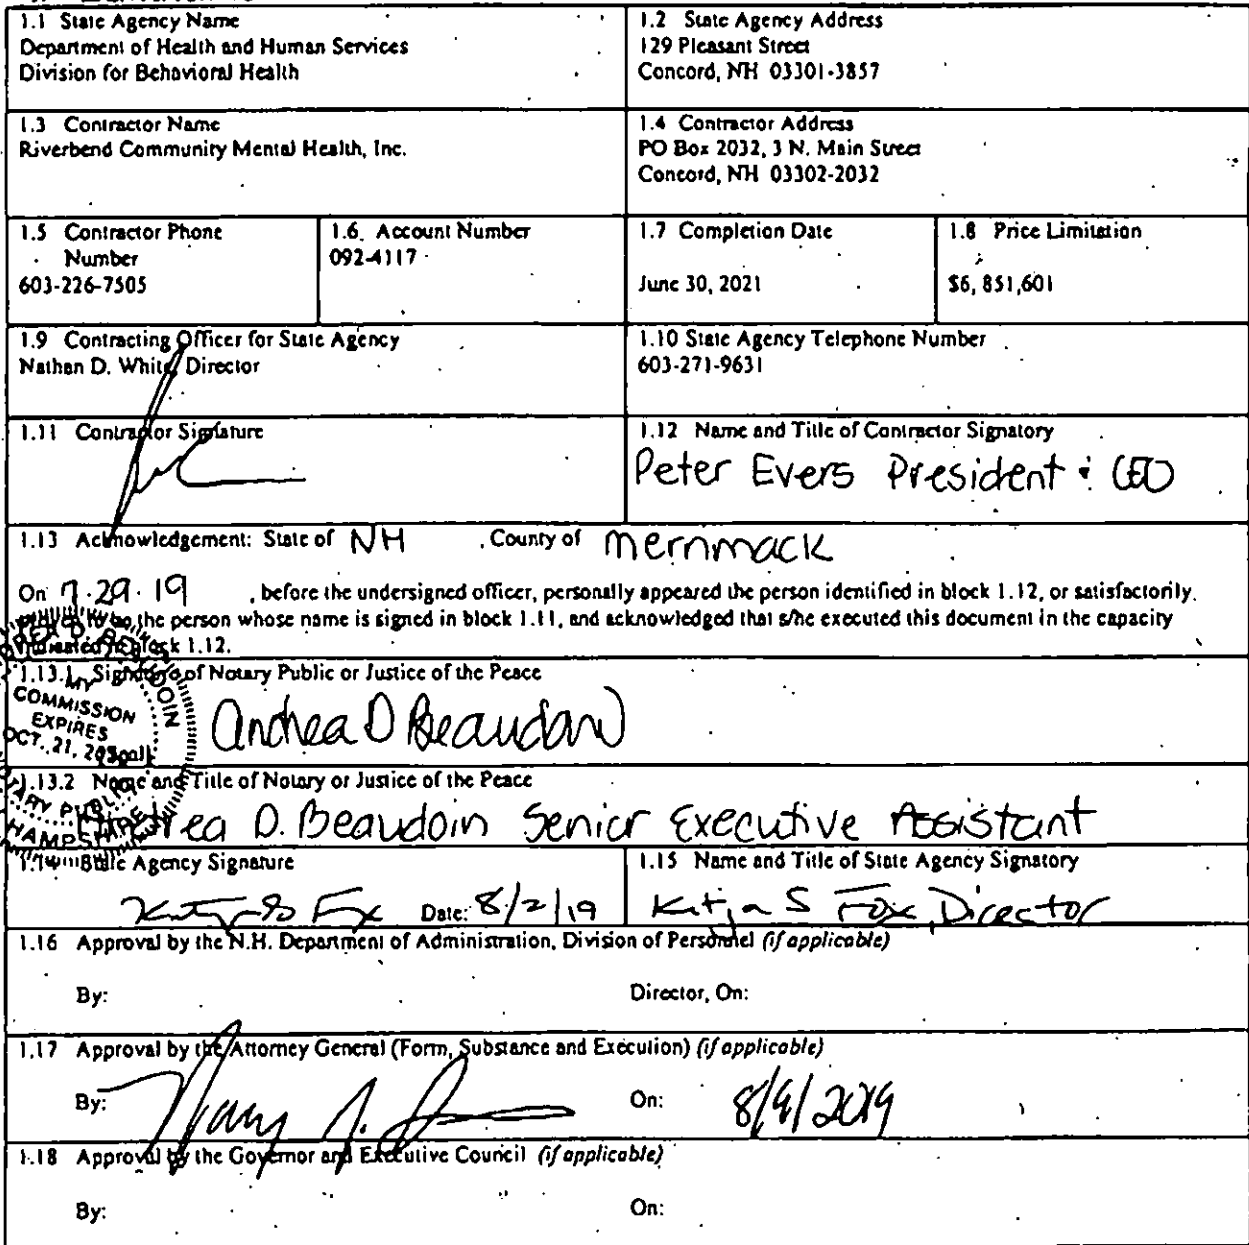 1.1 State Agency Name
Department of Health and Human Services
Division for Behavioral Health
1.2 State Agency Address
129 Pleasant Street
Concord, NH 03301-3857
1.3 Contractor Name
Riverbend Community Mental Health, Inc.
1.4 Contractor Address
PO Box 2032, 3 N. Main Street
Concord, NH 03302-2032
1.5 Contractor Phone
Number
603-226-7505
1.6. Account Number
092-4117
1.7 Completion Date
June 30, 2021
1.8 Price Limitation
$6, 851,601
1.9 Contracting Officer for State Agency
Nathan D. White, Director
1.10 State Agency Telephone Number
603-271-9631
1.11 Contractor Signature
1.12 Name and Title of Contractor Signatory
Peter Evers President & CEO
1.13 Acknowledgement: State of NH , County of Merrimack
On 7.29.19 , before the undersigned officer, personally appeared the person identified in block 1.12, or satisfactorily
proven to be the person whose name is signed in block 1.11, and acknowledged that s/he executed this document in the capacity
indicated in block 1.12.
1.13.1 Signature of Notary Public or Justice of the Peace
MY
COMMISSION
EXPIRES
OCT. 21,
[Seal]
Andrea D Beaudoin
1.13.2 Name and Title of Notary or Justice of the Peace
Andrea D. Beaudoin Senior Executive Assistant
1.14 State Agency Signature
Date: 8/2/19
1.15 Name and Title of State Agency Signatory
Katja S Fox, Director
1.16 Approval by the N.H. Department of Administration, Division of Personnel (if applicable)
By:
Director, On:
1.17 Approval by the Attorney General (Form, Substance and Execution) (if applicable)
By:
On: 8/9/2019
1.18 Approval by the Governor and Executive Council (if applicable)
By:
On: